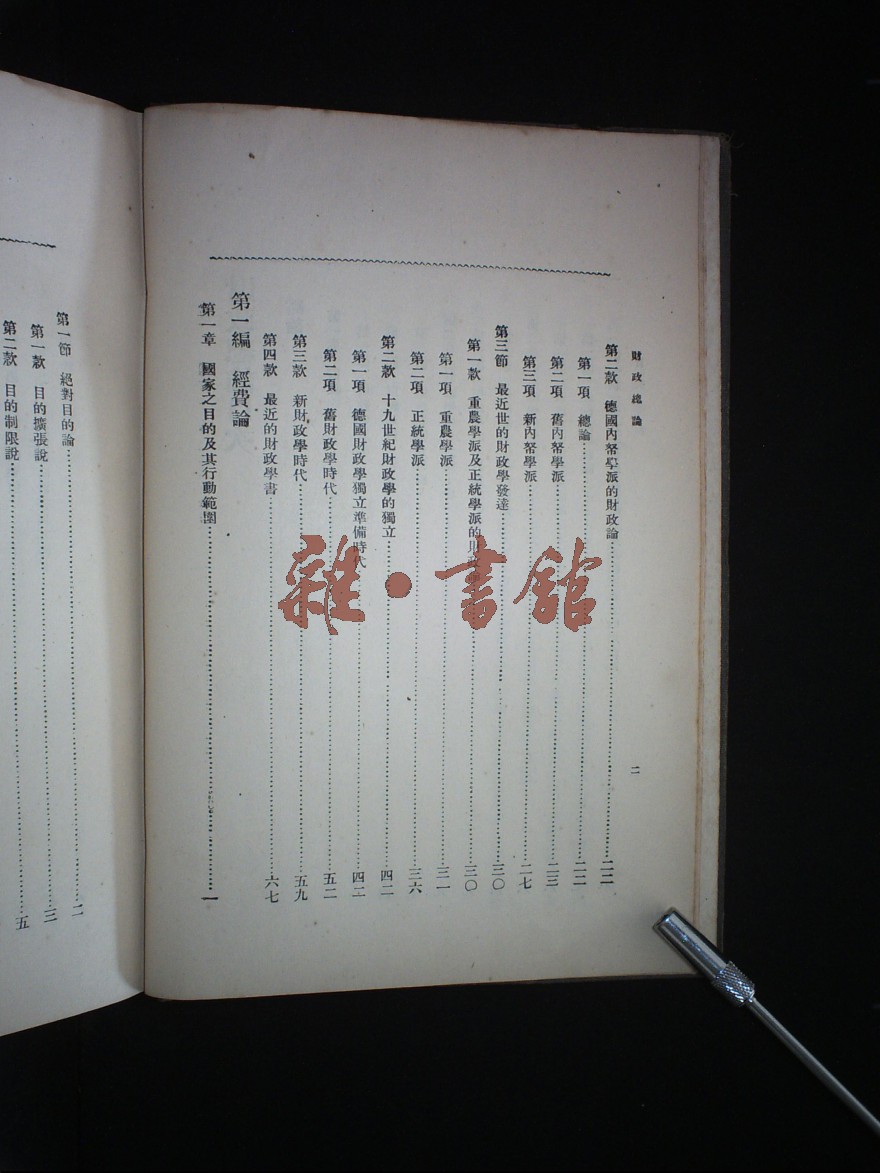 財政總論
二
第二款 德國內帑學派的財政論 二二
第一項 總論 二二
第二項 舊內帑學派 二三
第三項 新內帑學派 二七
第三節 最近世的財政學發達 三〇
第一款 重農學派及正統學派的財政 三〇
第一項 重農學派 三一
第二項 正統學派 三六
第二款 十九世紀財政學的獨立 四二
第一項 德國財政學獨立準備時代 四二
第二項 舊財政學時代 五二
第三款 新財政學時代 五九
第四款 最近的財政學書 六七
第一編 經費論
第一章 國家之目的及其行動範圍 一
第一節 絕對目的論 二
第一款 目的擴張說 三
第二款 目的制限說 五
雜·書館